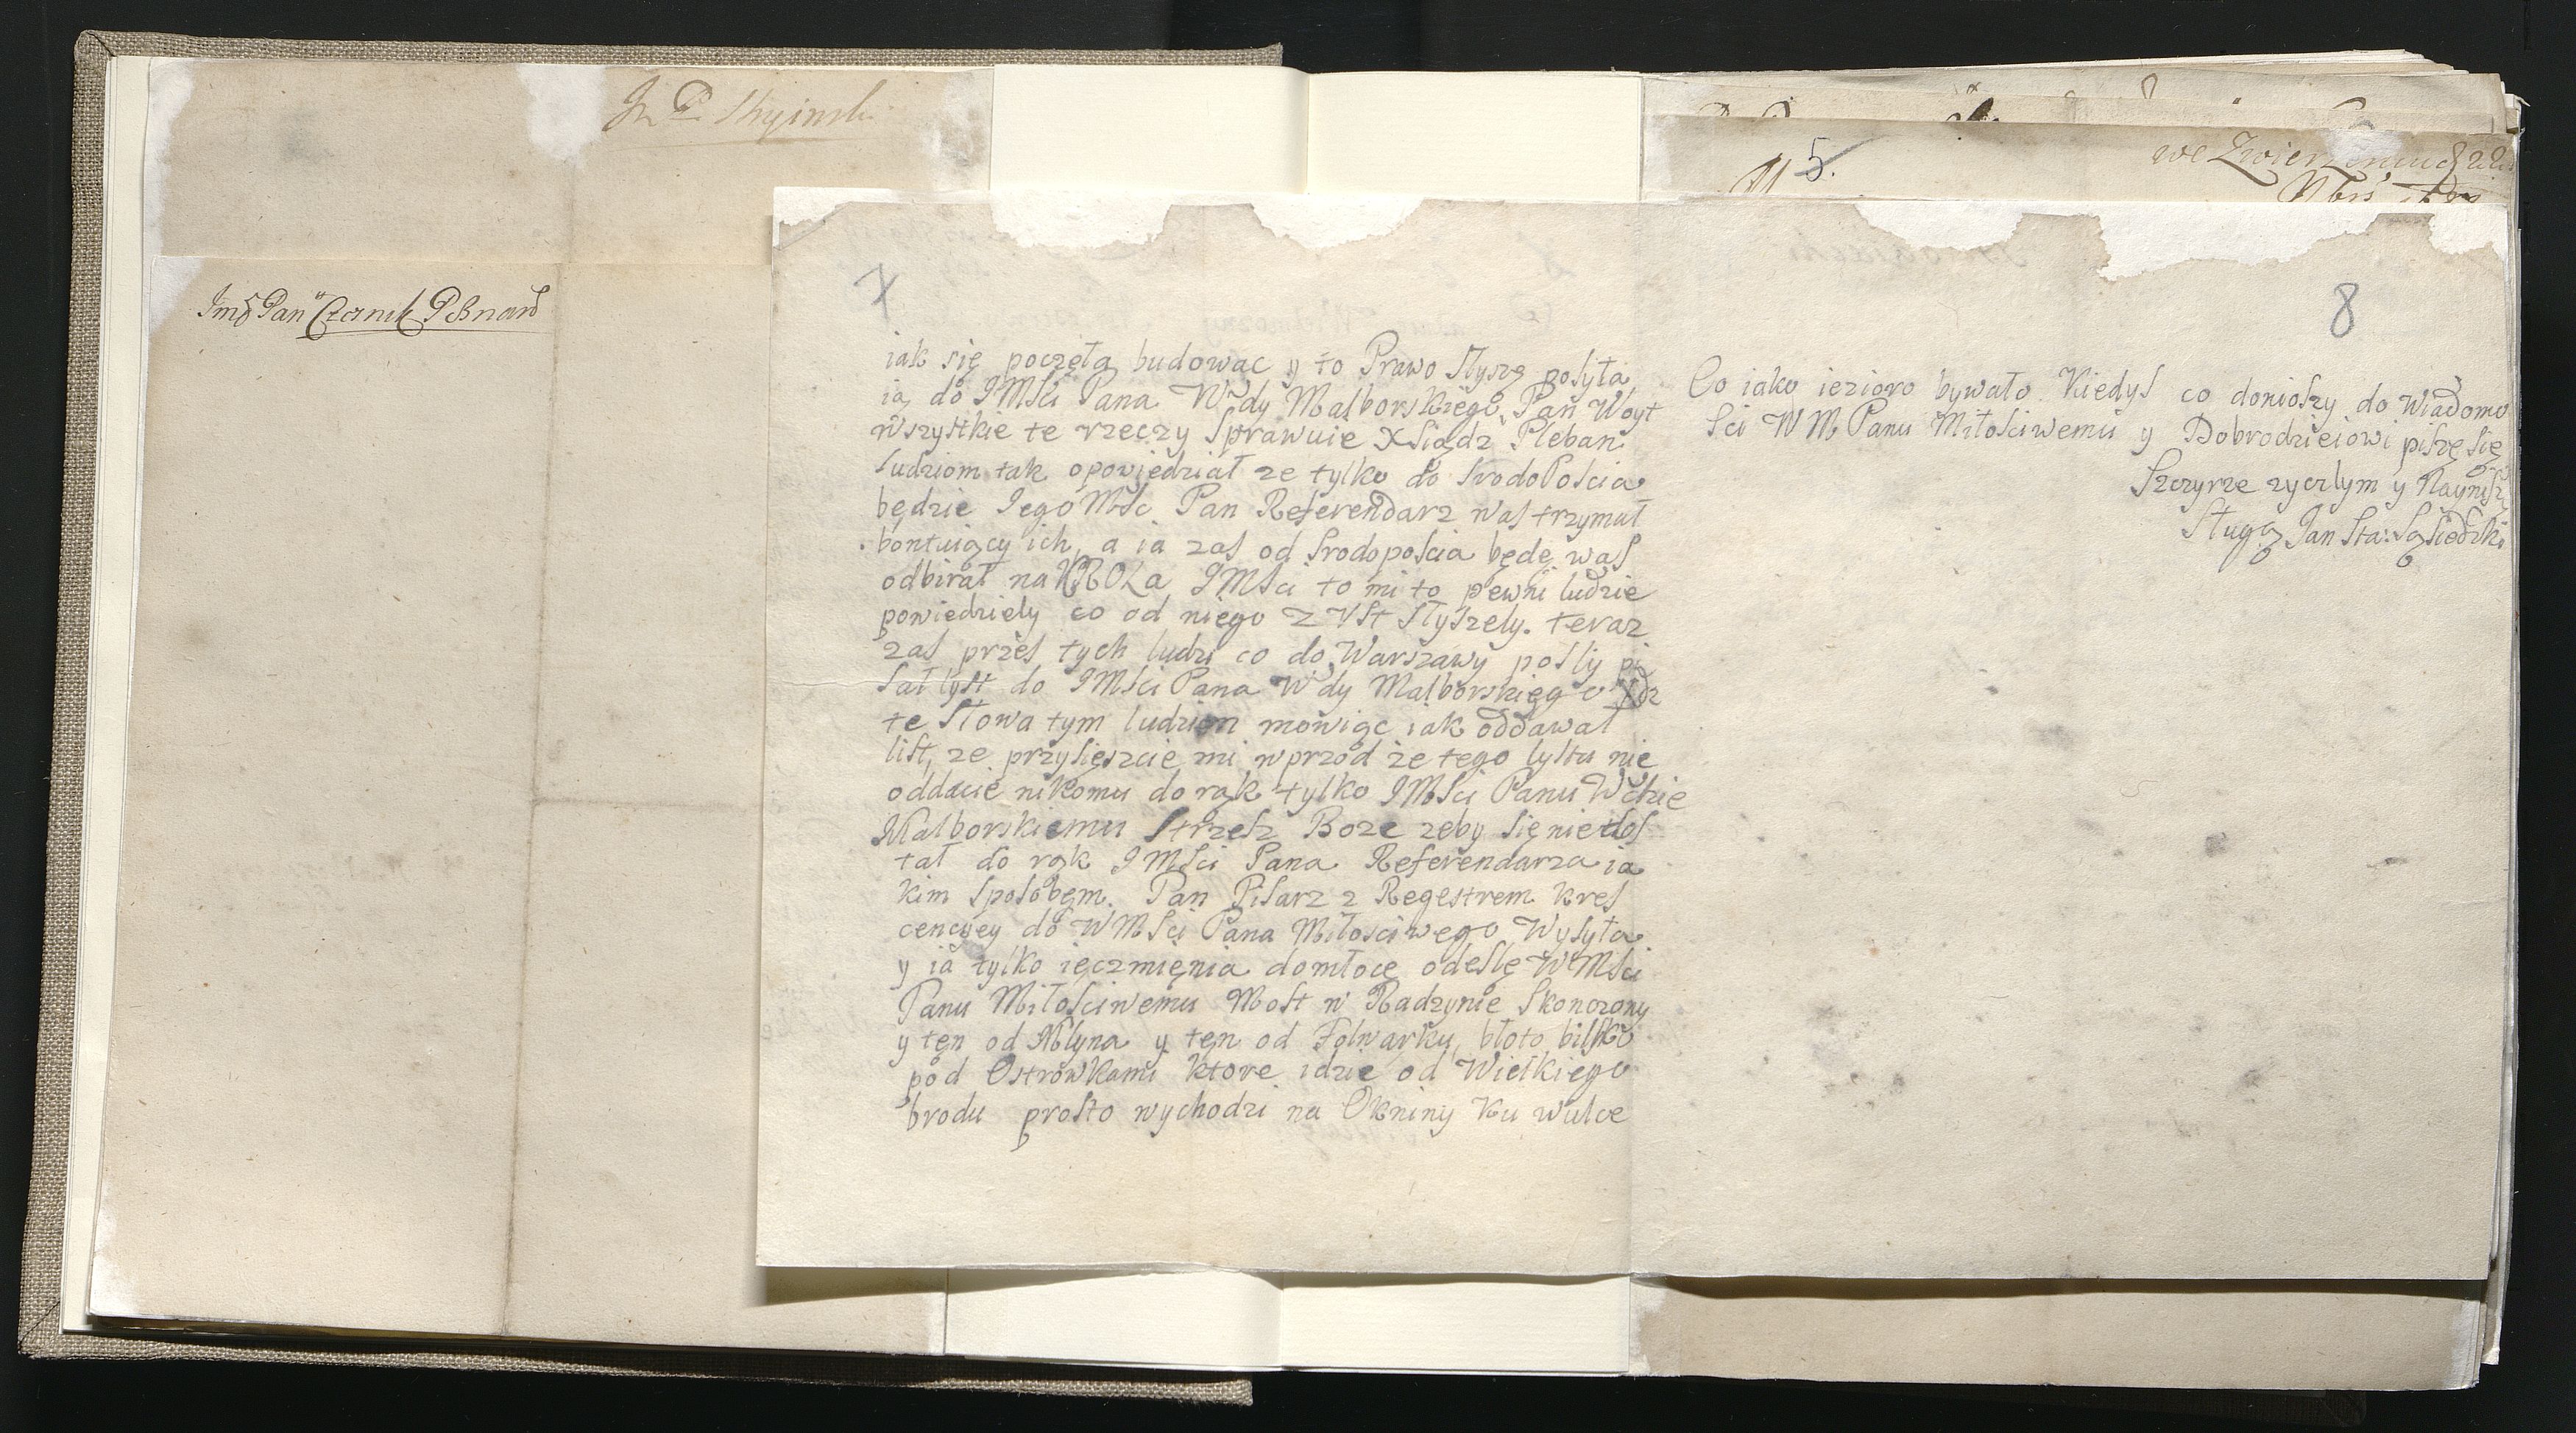 Jmć Pan Czesnik
7
iak się poczęła budowac y to Prawo słyszę posyła
ią do JMSci Pana Wdy Malborskiego, Pan Woyt
wszystkie te rzeczy sprawuie Xsiądz Pleban
ludziom tak opowiedział ze tylko do srodoPoscia
będzie JegoMSc Pan Referendarz was trzymał
bontuiący ich, a ia zas od srodoposcia będę was
odbirał na KROLa JMSci to mi to pewni ludzie
powiedziely co od niego z Vst słyszely. teraz
zas przes tych ludzi co do Warszawy posly pi
sał lyst do JMSci Pana Wdy Malborskiego Xdz
te słowa tym ludziom mowiąc iak oddawał
list, ze przysięszcie mi wprzod że tego lystu nie
oddacie nikomu do rąk tylko JMSci Panu Wdzie
Malborskiemu strzesz Boze zeby się niedos
tał do rąk JMSci Pana Referendarza ia
kim sposobęm. Pan Pisarz z Regestrem kres
cencyey do WMSci Pana Miłosciwego Wysyła
y ia tylko ięczmięnia domłocę odeslę WMSci
Panu Miłosciwemu Most w Radzynie skonczony
y tęn od Młyna y tęn od Folwarku, błoto blisko
pod Ostrowkami ktore idzie od Wielkiego
brodu prosto wychodzi na Okniny ku wulce
5.
we
8
Co iako iezioro bywało kiedys co doniosszy do wiadomo
sci WMPanu Miłosciwemu y Dobrodzieiowi piszę się
Szczyrze zyczlym y Nayniss
Sługą Jan Sta: